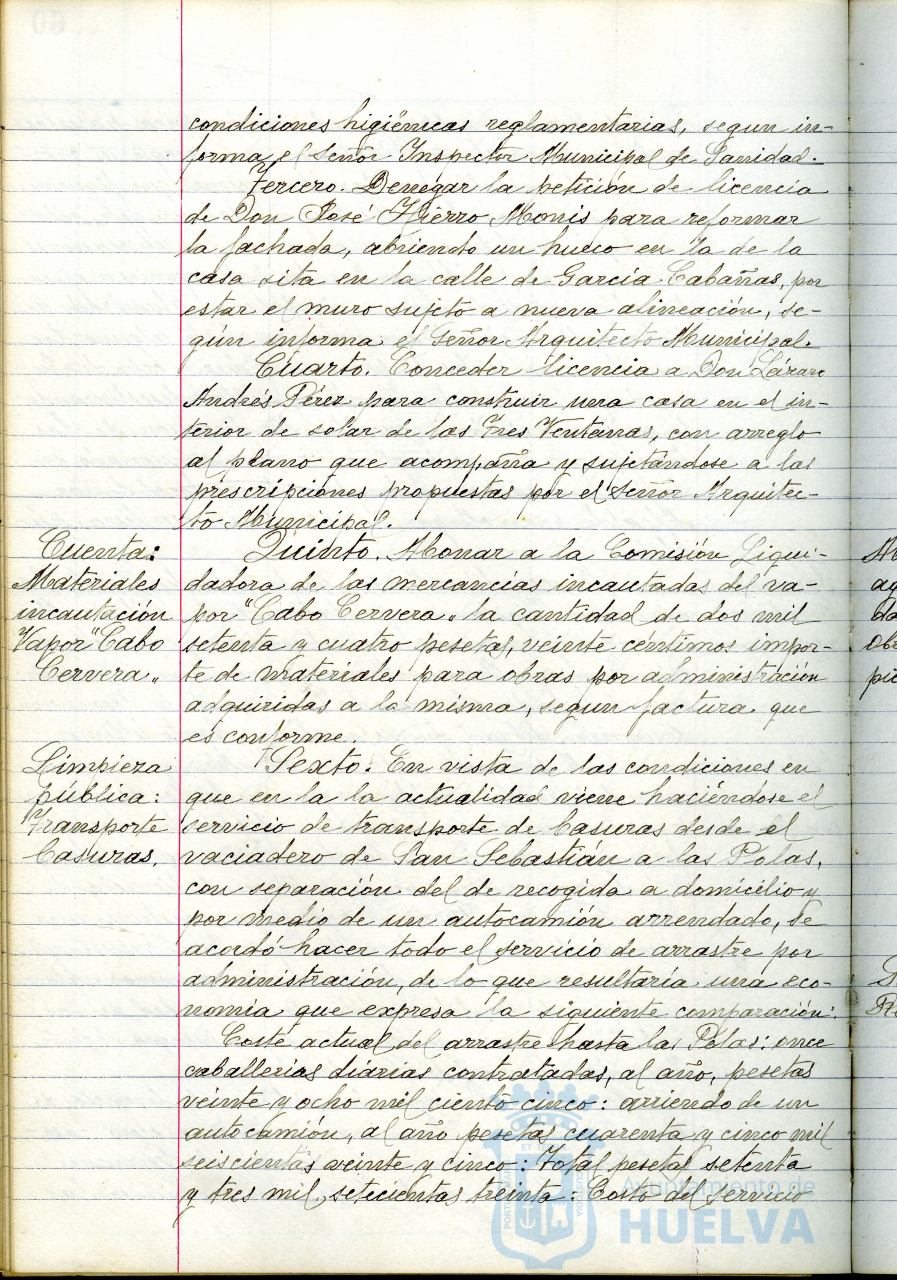 condiciones higiénicas reglamentarias, segun in-
forma el Señor Inspector Municipal de Sanidad.
Tercero. Denegar la petición de licencia
de Don José Hierro Monis para reformar
la fachada, abriendo un hueco en la de la
casa sita en la calle de García Cabañas, por
estar el muro sujeto a nueva alineación, se-
gún informa el Señor Arquitecto Municipal.
Cuarto. Conceder licencia a Don Lázaro
Andrés Pérez para construir una casa en el in-
terior de solar de las Tres Ventanas, con arreglo
al plano que acompaña y sujetándose a las
prescripciones propuestas por el Señor Arquitec-
to Municipal.
Cuenta:
Materiales
incautación
Vapor "Cabo
Cervera"
Quinto. Abonar a la Comisión Liqui-
dadora de las mercancías incautadas del va-
por "Cabo Cervera" la cantidad de dos mil
setenta y cuatro pesetas, veinte céntimos impor-
te de materiales para obras por administración
adquiridas a la misma, segun factura que
es conforme.
Limpieza
pública:
Transporte
basuras.
Sexto. En vista de las condiciones en
que en la la actualidad viene haciéndose el
servicio de transporte de basuras desde el
vaciadero de San Sebastián a las Polas,
con separación del de recogida a domicilio y
por medio de un autocamión arrendado, se
acordó hacer todo el servicio de arrastre por
administración, de lo que resultaría una eco-
nomía que expresa la siguiente comparación:
Coste actual del arrastre hasta las Polas: once
caballerias diarias contratadas, al año, pesetas
veinte y ocho mil ciento cinco: arriendo de un
autocamión, al año pesetas cuarenta y cinco mil
seiscientas veinte y cinco: Total pesetas setenta
y tres mil, setecientas treinta: Costo del servicio
Ayuntamiento de
HUELVA